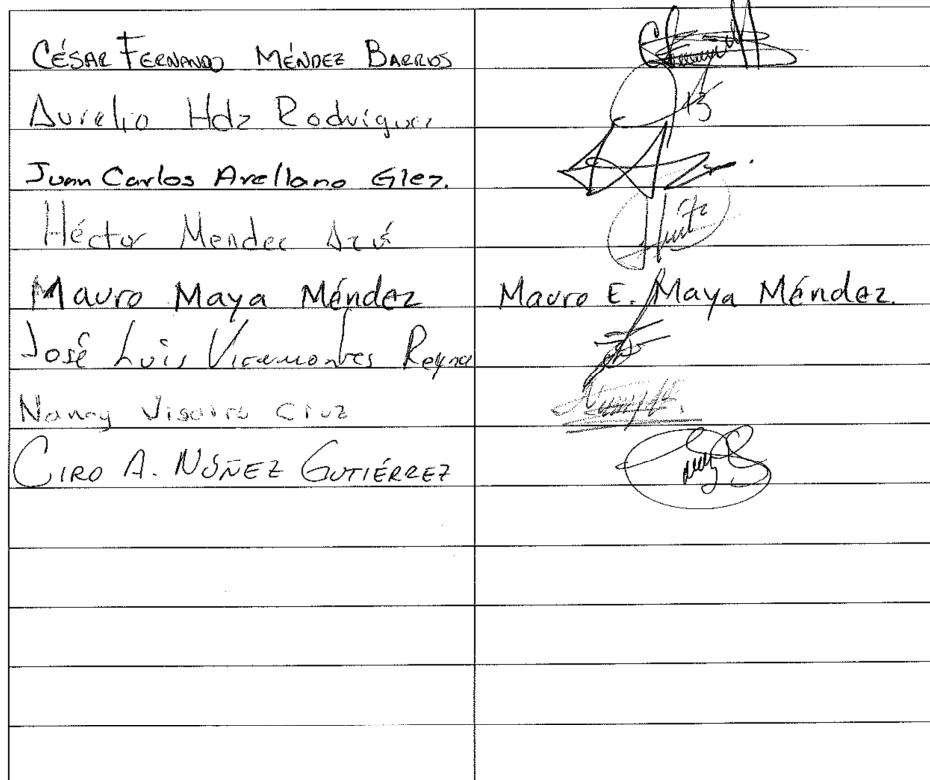 CÉSAR FERNANDO MÉNDEZ BARRIOS
Aurelio Hdz Rodríguez
Juan Carlos Arellano Glez.
Héctor Mendez
Mauro Maya Méndez Mauro E. Maya Méndez.
José Luis Viramontes Reyna
Nancy Visairo Cruz
CIRO A. NÚÑEZ GUTIÉRREZ